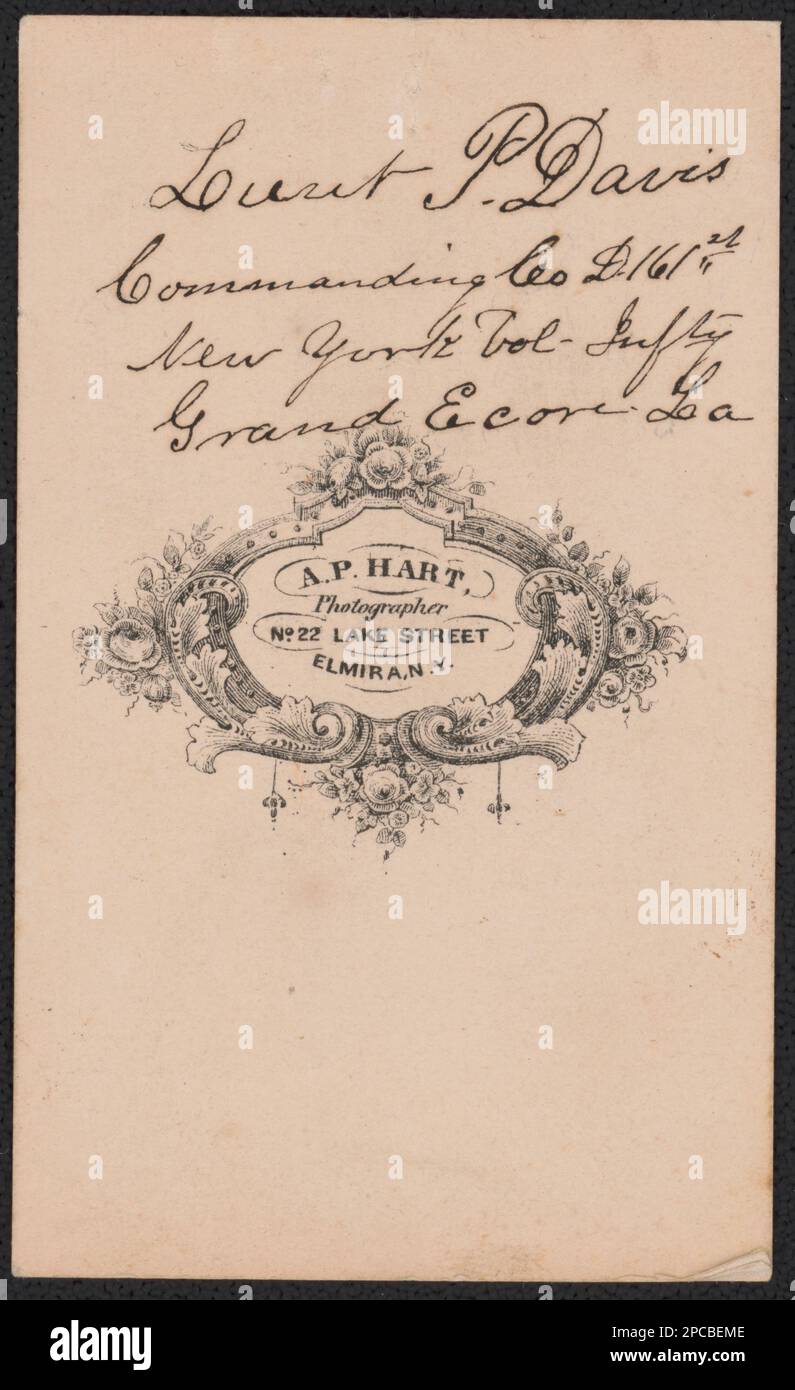 Lieut P. Davis
Commanding Co D. 161st
New York Vol- Infty
Grand Ecore La
A. P. HART,
Photographer
No 22 LAKE STREET
ELMIRA, N.Y.
alamy
alamy
alamy
Image ID: 2PCBEME
www.alamy.com